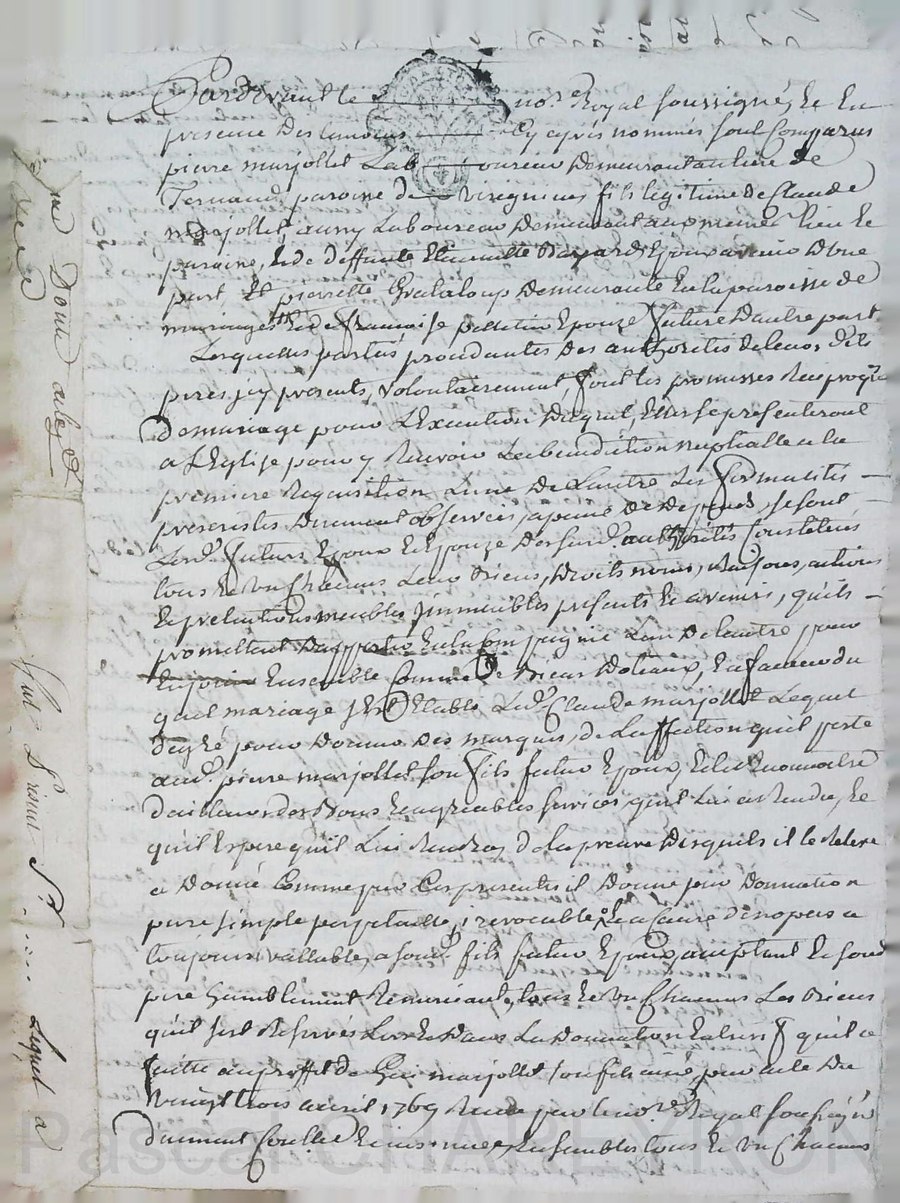 Pardevant le no.re Royal soussigné, Et En
presence Des temoins Cy après nommés sont Comparus
pierre marjollet Laboureur Demeurant au lieu de
Fernand paroisse de virignieus fils legitime de Claude
marjollet aussy Laboureur Demeurant au meme lieu Et
paroisse, Et de deffunte Epoux avenir D'une
part, Et pierrette Grataloup Demeurante En la paroisse de
Et de francoise pelletier Epouze future D'autre part
Lesquelles parties procedantes Des authorités de leurs dits
peres icy presents, volontairement se sont faits promesses Reciproq.
De mariage pour L'Execution Duquel, Elles se presenteront
a L'Eglise pour y Recevoir La benediction nuptialle a la
premiere Requisition L'une De L'autre Les formalités
prescrittes Duement observées, a peine de Depends, se sont
Lesd. futurs Epoux Et Epouze Desd. authorités Constitués
tous Et Un Chacuns Leurs Biens, Droits noms, Raisons, actions
Et pretentions meubles Immeubles presents Et avenirs, qu'ils
promettent D'apporter En la Compagnie L'un De L'autre pour
En jouir Ensemble Comme De Biens Dotaux, En faveur du
quel mariage s'Est Etably Led. Claude marjollet Lequel
de gré pour Donner Des marques de L'affection qu'il porte
aud. pierre marjollet son fils futur Epoux, Et le Reconnoitre
D'ailleurs des Bons Et agreables services qu'il Lui a Rendu, Et
qu'il Espere qu'il Lui Rendra, De La preuve Desquels il le Releve
a Donné Comme par Ces presentes il Donne par Donnation
pure simple perpetuelle, irrevocable Et a Cause de nopces a
toujours vallable, a sond. fils futur Epoux, acceptant Et sond
pere humblement Remerciant, tous Et Un Chacuns Les Biens
qu'il s'est Reservés dans La Donnation qu'il a
faitte au proffit de marjollet son fils ainé, par acte Du
vingt trois avril 1769 Receu par le no.re Royal soussigné
Duement Controllé Et insinué, Ensemble tous Et Un Chacuns
Donne
Lequel a
Pascal CHAREYRON